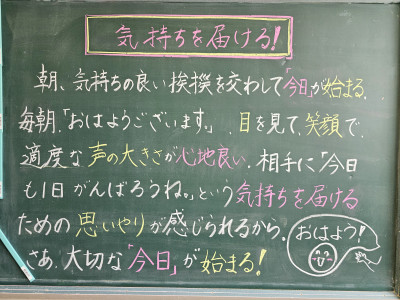 気持ちを届ける!
朝、気持ちの良い挨拶を交わして「今日」が始まる。
毎朝、「おはようございます。」、目を見て、笑顔で、
適度な声の大きさが心地良い。相手に「今日
も1日がんばろうね。」という気持ちを届ける
ための思いやりが感じられるから。
さあ、大切な「今日」が始まる!
おはよう!